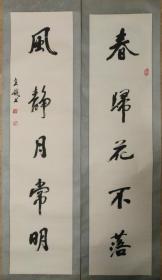 春歸花不落
風靜月常明